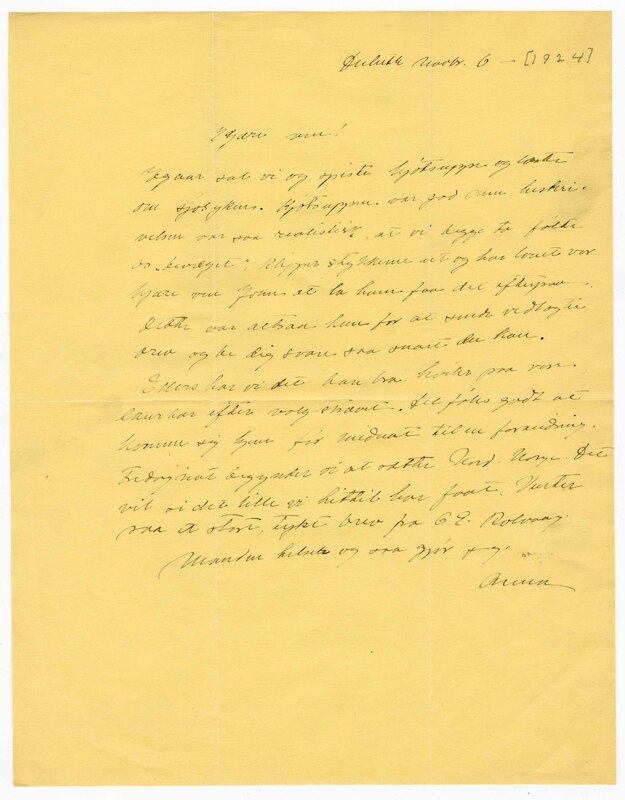 Duluth Novbr. 6 – [1924]
Kjære ven!
Igaar sat vi og spiste kjøtsuppe og læste
om sjøsykens. Kjøtsuppen var god men beskri-
velsen var saa realistisk, at vi begge to følte
os "bevæget". Klipper stykkerne ut og har lovet vor
kjære ven at la ham faa det
Dette var altsaa kun for at sende vedlagte
brev og be dig svare saa snart du kan.
Ellers har vi det bare bra, hviler paa vore
laurbær efter valg-strævet. Det føles godt at
komme sig hjem før midnat til en forandring.
Fredags nat begynder vi at sætte Nord-Norge. Det
vil si det lille vi hittil har faat. Venter
saa et stort, tykt brev fra O. E. Rolvaag.
Manden hilser og saa gjør jeg.
Anna